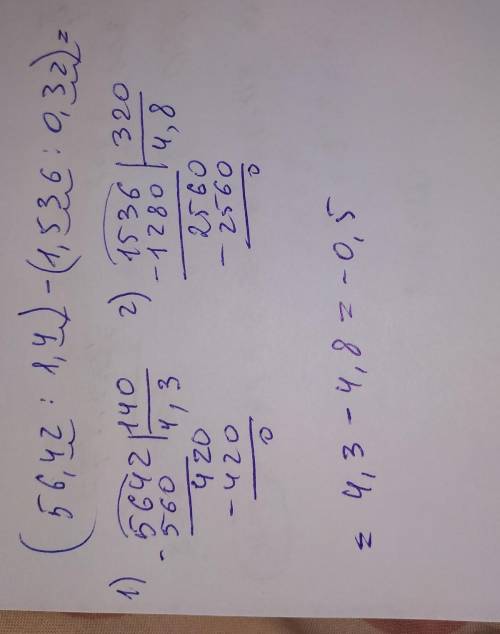 (56,42 : 1,4) - (1,536 : 0,32) =
1) 5642 | 140
- 560 4,3
420
- 420
0
2) 1536 | 320
- 1280 4,8
2560
- 2560
0
= 4,3 - 4,8 = -0,5